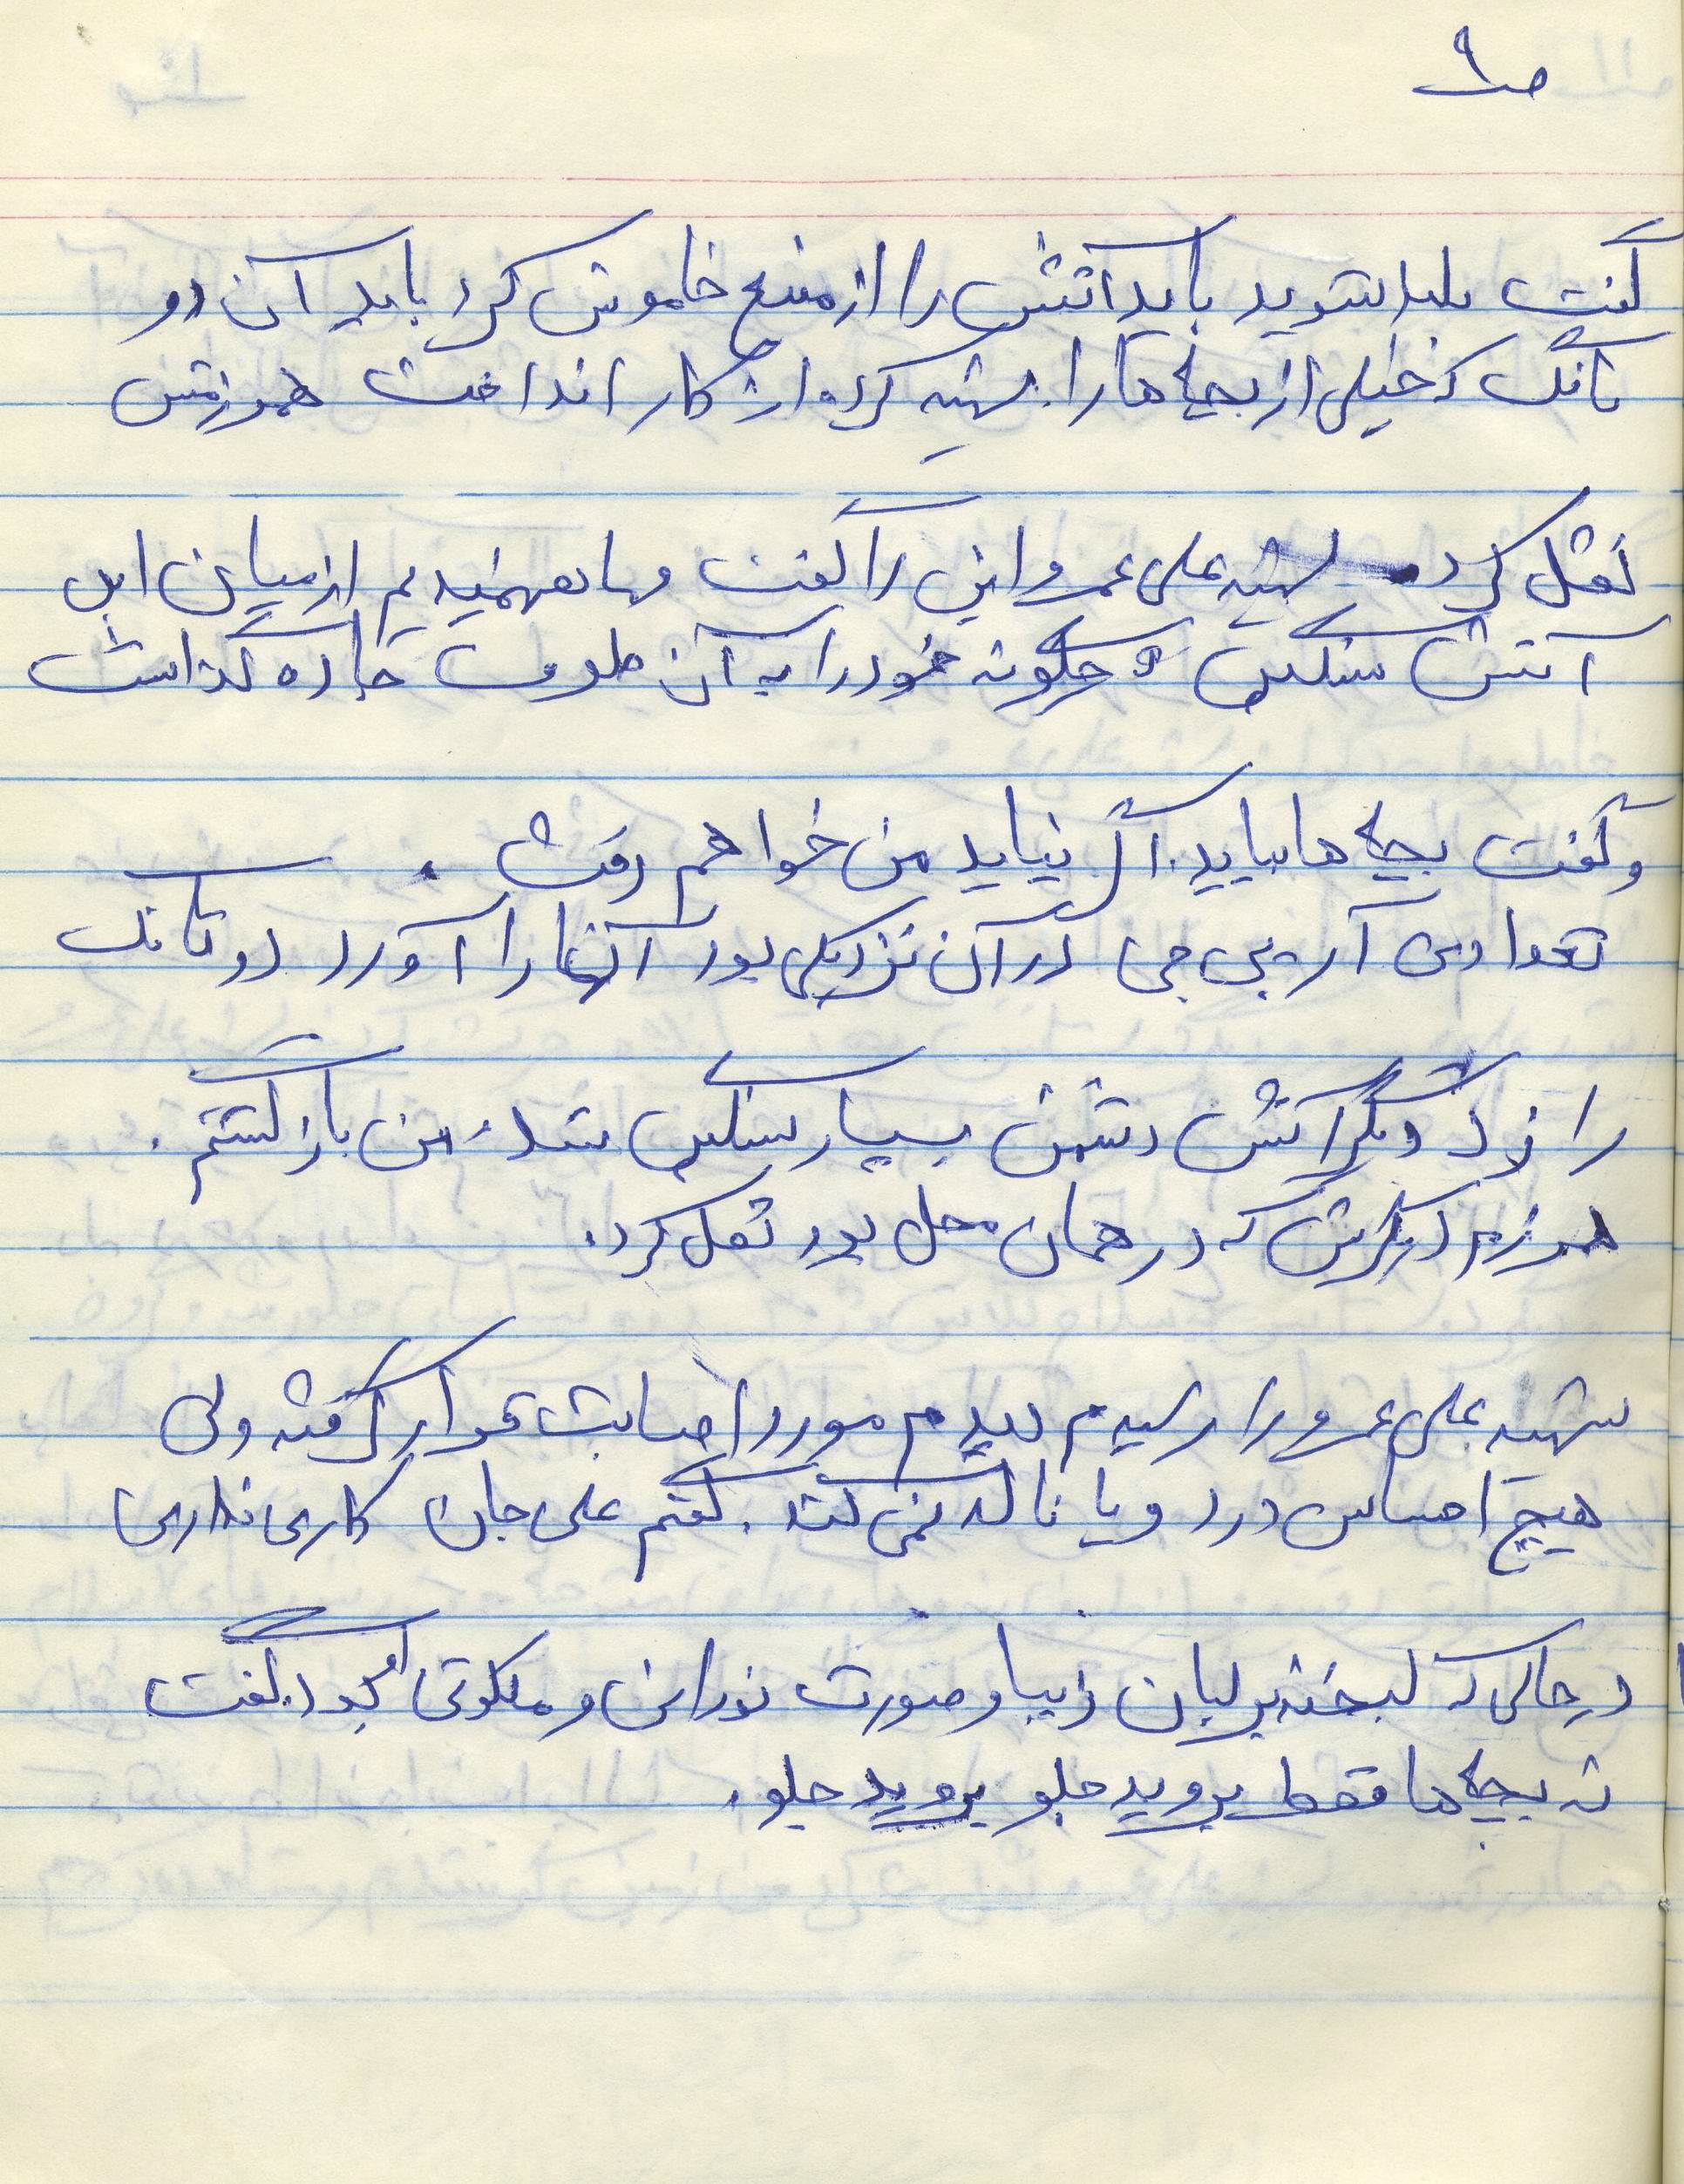 ص۹
گفت بلند شوید باید آتش را از منبع خاموش کرد باید آن دو
تانک که خیلی از بچه ها را شهید کرده از کار انداخت همرزمش
نقل کرد شهید علی عمرو این را گفت و ما نفهمیدیم از میان این
آتش سنگین چگونه خود را به آن طرف جاده گذاشت
و گفت بچه ها بیاید. اگر نیاید من خواهم رفت.
تعدادی آر پی جی در آن نزدیکی بود آنها را آورد دو تانک
را زد و دیگر آتش دشمن بسیار سنگین شد. من بازگشتم.
همرزم دیگرش که در همان محل بود نقل کرد.
شهید علی عمرو را رسیدم دیدم مورد اصابت قرار گرفته ولی
هیچ احساس درد و یا ناله نمی کند. گفتم علی جان کاری نداری
در حالی که لبخند بر لبان زیبا و صورت نورانی و ملکوتی بود. گفت
نه بچه ها فقط بروید جلو بروید جلو.